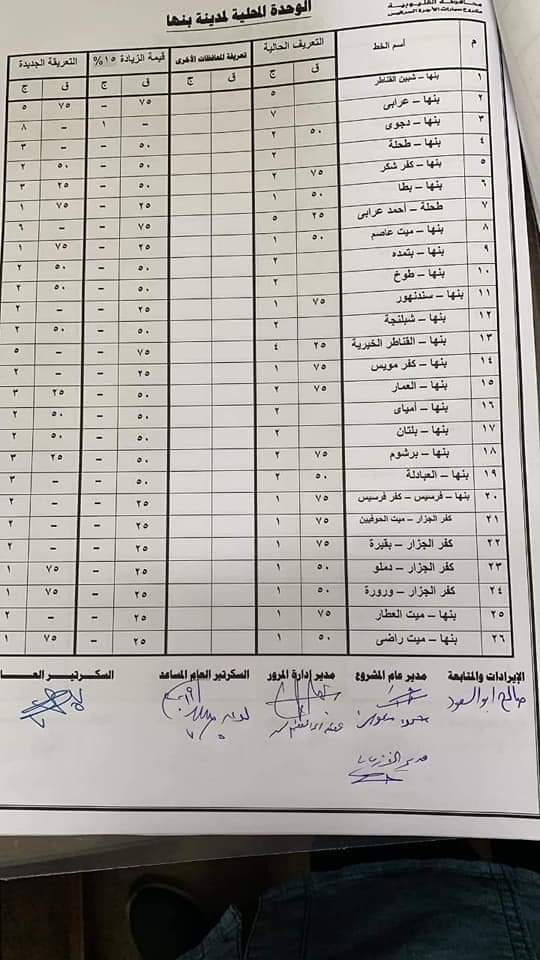 محافظة القليوبية
مشروع سيارات الأجرة السرفيس
الوحدة المحلية لمدينة بنها
م أسم الخط التعريف الحالية تعريفة للمحافظات الأخرى قيمة الزيادة ١٥% التعريفة الجديدة
ق ج ق ج ق ج ق ج
١ بنها – شبين القناطر ٥ ٧٥ – ٧٥ ٥
٢ بنها – عرابى ٧ – ١ – ٨
٣ بنها – دجوى ٥٠ ٢ ٥٠ – – ٣
٤ بنها – طحلة ٢ ٥٠ – ٥٠ ٢
٥ بنها – كفر شكر ٧٥ ٢ ٥٠ – ٢٥ ٣
٦ بنها – بطا ٥٠ ١ ٢٥ – ٧٥ ١
٧ طحلة – أحمد عرابى ٢٥ ٥ ٧٥ – – ٦
٨ بنها – ميت عاصم ٥٠ ١ ٢٥ – ٧٥ ١
٩ بنها – بتمده ٢ ٥٠ – ٥٠ ٢
١٠ بنها – طوخ ٢ ٥٠ – ٥٠ ٢
١١ بنها – سندنهور ٧٥ ١ ٢٥ – – ٢
١٢ بنها – شبلنجة ٢ ٥٠ – ٥٠ ٢
١٣ بنها – القناطر الخيرية ٢٥ ٤ ٧٥ – – ٥
١٤ بنها – كفر مويس ٧٥ ١ ٢٥ – – ٢
١٥ بنها – العمار ٧٥ ٢ ٥٠ – ٢٥ ٣
١٦ بنها – أمياى ٢ ٥٠ – ٥٠ ٢
١٧ بنها – بلتان ٢ ٥٠ – ٥٠ ٢
١٨ بنها – برشوم ٧٥ ٢ ٥٠ – ٢٥ ٣
١٩ بنها – العبادلة ٥٠ ٢ ٥٠ – – ٣
٢٠ بنها – فرسيس – كفر فرسيس ٧٥ ١ ٢٥ – – ٢
٢١ كفر الجزار – ميت الحوفيين ٧٥ ١ ٢٥ – – ٢
٢٢ كفر الجزار – بقيرة ٧٥ ١ ٢٥ – – ٢
٢٣ كفر الجزار – دملو ٥٠ ١ ٢٥ – ٧٥ ١
٢٤ كفر الجزار – ورورة ٥٠ ١ ٢٥ – ٧٥ ١
٢٥ بنها – ميت العطار ٧٥ ١ ٢٥ – – ٢
٢٦ بنها – ميت راضى ٥٠ ١ ٢٥ – ٧٥ ١
الإيرادات والمتابعة مدير عام المشروع مدير إدارة المرور السكرتير العام المساعد السكرتير العا
صالح ابو السعود